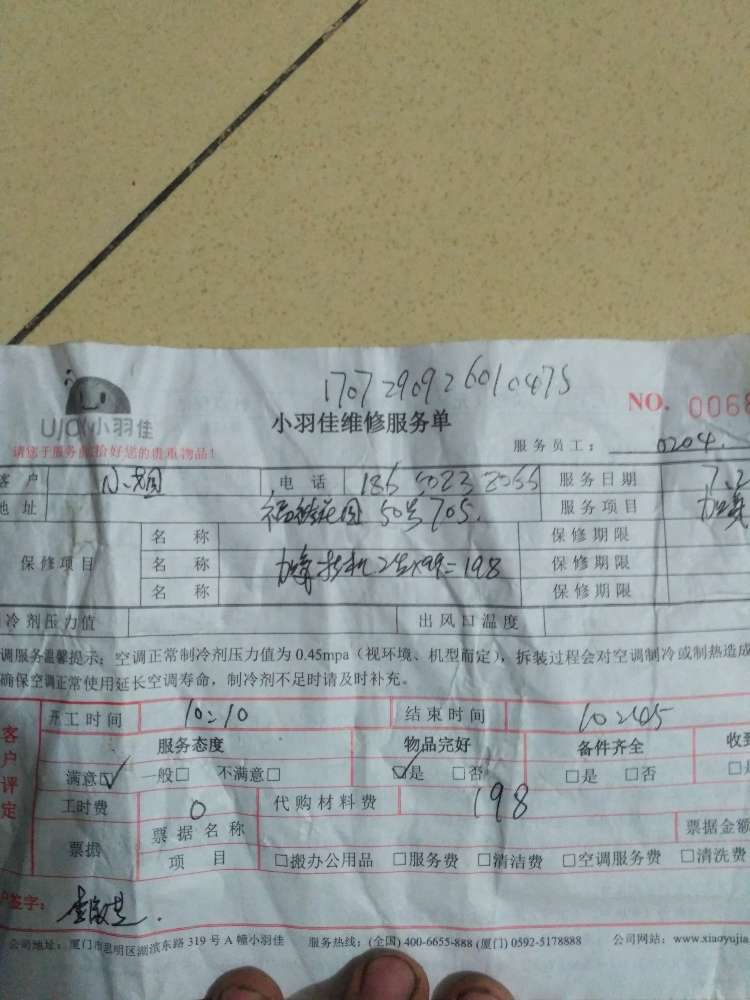 1707290926010475
小羽佳
小羽佳维修服务单
NO. 0068
请您于服务前拾好您的贵重物品!
服务员工: 0204.
客户 电话 186 5023 2065 服务日期 7.2
地址 福桂花园 50号705. 服务项目
名称 保修期限
保修项目 名称 2台×99=198 保修期限
名称 保修期限
冷剂压力值 出风口温度
调服务温馨提示: 空调正常制冷剂压力值为 0.45mpa (视环境、机型而定), 拆装过程会对空调制冷或制热造成
确保空调正常使用延长空调寿命, 制冷剂不足时请及时补充。
开工时间 10:10 结束时间 10:45
客户评定
服务态度 物品完好 备件齐全 收到
满意☑ 一般□ 不满意□ ☑是 □否 □是 □否 □
工时费 0 代购材料费 198
票据 票据名称 票据金额
项目 □搬办公用品 □服务费 □清洁费 □空调服务费 □清洗费
户签字:
公司地址: 厦门市思明区湖滨东路 319 号 A 幢小羽佳 服务热线: (全国) 400-6655-888 (厦门) 0592-5178888 公司网站: www.xiaoyujia